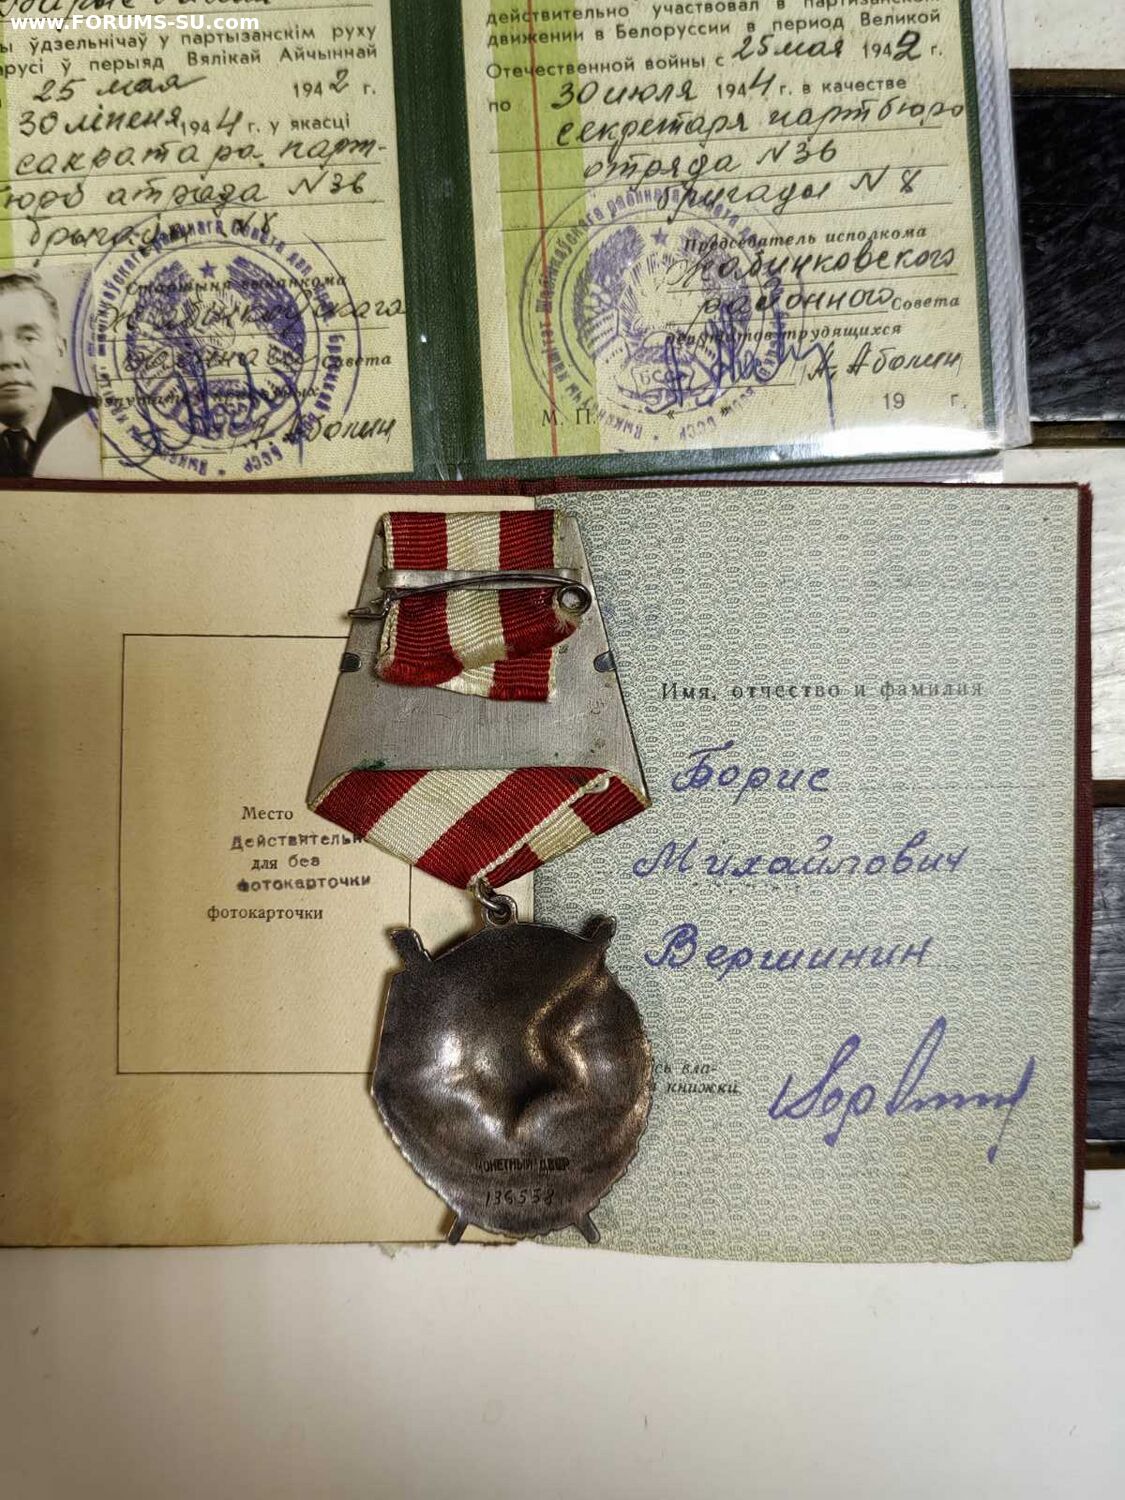 www.FORUMS-SU.com
ы ўдзельнічаў у партызанскім руху
арусі ў перыяд Вялікай Айчыннай
25 мая 1942 г.
30 ліпеня 1944 г. у якасці
сакратара парт-
юро атрада N 36
брыгады N 8
Старшыня выканкома
Савета
А. Аболин
действительно участвовал в партизанском
движении в Белоруссии в период Великой
Отечественной войны с 25 мая 1942 г.
по 30 июля 1944 г. в качестве
секретаря партбюро
отряда N 36
бригады N 8
Председатель исполкома
Жабинковского
районного Совета
депутатов трудящихся
А. Аболин
М. П. 19 г.
БССР
Место
Действительн
для без
фотокарточки
фотокарточки
Имя, отчество и фамилия
Борис
Михайлович
Вершинин
сь вла-
книжки
МОНЕТНЫЙ ДВОР
136558